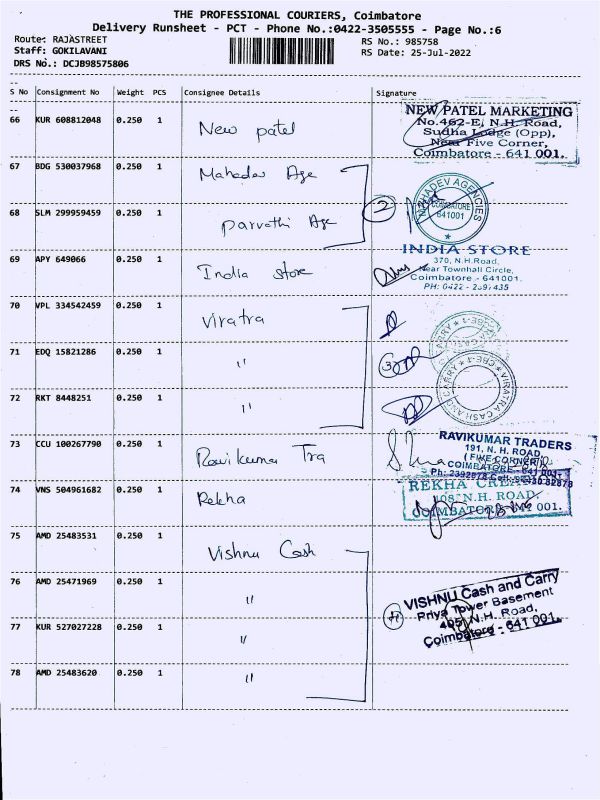 THE PROFESSIONAL COURIERS, Coimbatore
Delivery Runsheet - PCT - Phone No.:0422-3505555 - Page No.:6
Route: RAJASTREET
RS No.: 985758
Staff: GOKILAVANI
RS Date: 25-Jul-2022
DRS No.: DCJB98575806
S No Consignment No Weight PCS Consignee Details Signature
66 KUR 608812048 0.250 1 New patel
NEW PATEL MARKETING
No.462-E, N.H. Road,
Sudha Lodge (Opp),
Near Five Corner,
Coimbatore - 641 001.
67 BDG 530037968 0.250 1 Mahadev Age
MAHADEV AGENCIES
COIMBATORE
641001
2
68 SLM 299959459 0.250 1 parvathi Age
69 APY 649066 0.250 1 India store
INDIA STORE
370, N.H.Road,
Near Townhall Circle,
Coimbatore - 641001.
PH: 0422 - 2397435
70 VPL 334542459 0.250 1 Viratra
71 EDQ 15821286 0.250 1 "
3
VIRATRA CASH AND CARRY ★ CBE-1 ★
72 RKT 8448251 0.250 1 "
73 CCU 100267790 0.250 1 Ravi kumar Tra
RAVIKUMAR TRADERS
191, N. H. ROAD,
(FIVE CORNER)
COIMBATORE - 641 001.
74 VNS 504961682 0.250 1 Rekha
REKHA
108, N.H. ROAD,
COIMBATORE - 641 001.
75 AMD 25483531 0.250 1 Vishnu Cash
76 AMD 25471969 0.250 1 "
VISHNU Cash and Carry
Priya Tower Basement
405, N.H. Road,
Coimbatore - 641 001.
4
77 KUR 527027228 0.250 1 "
78 AMD 25483620 0.250 1 "